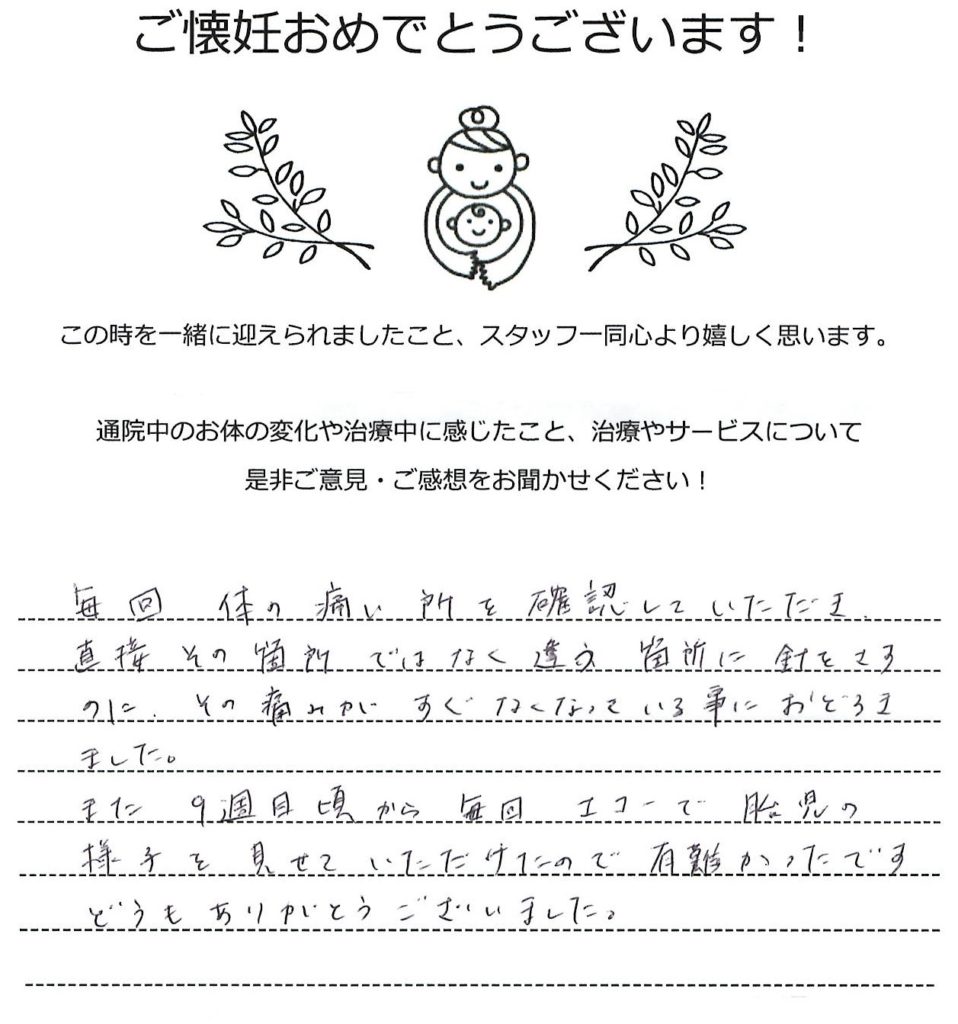 ご懐妊おめでとうございます！
この時を一緒に迎えられましたこと、スタッフ一同心より嬉しく思います。
通院中のお体の変化や治療中に感じたこと、治療やサービスについて
是非ご意見・ご感想をお聞かせください！
毎回 体の痛い所を確認していただき、
直接その箇所ではなく違う箇所に針をさす
のに、その痛みがすぐなくなっている事におどろき
ました。
また 9週目頃から毎回エコーで胎児の
様子を見せていただけたので有難かったです
どうもありがとうございました。